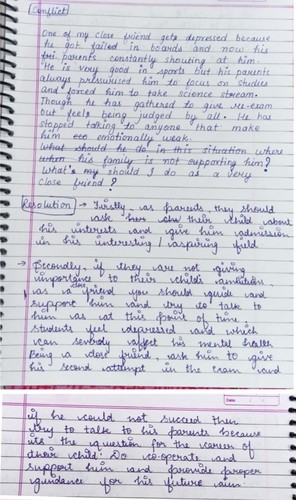 Conflict
One of my close friend gets depressed because
he got failed in boards and now his
parents constantly shouting at him.
He is very good in sports but his parents
always pressurised him to focus on studies
and forced him to take science stream.
Though he has gathered to give re-exam
but feels being judged by all. He has
stopped talking to anyone that make
him emotionally weak.
What should he do in this situation where
his family is not supporting him?
What's my should I do as a very
close friend?
Resolution → Firstly, as parents they should
ask their child about
his interests and give him admission
in his interesting / aspiring field
→ Secondly, if they are not giving
importance to their child's ambition
as a close friend you should guide and
support him and try to talk to
him as at this point of time
students feel depressed and which
can severly affect his mental health
Being a close friend, ask him to give
his second attempt in the exam and
if he could not succeed then
try to talk to his parents because
its the question for the career of
their child. Do co-operate and
support him and provide proper
guidance for his future aim.